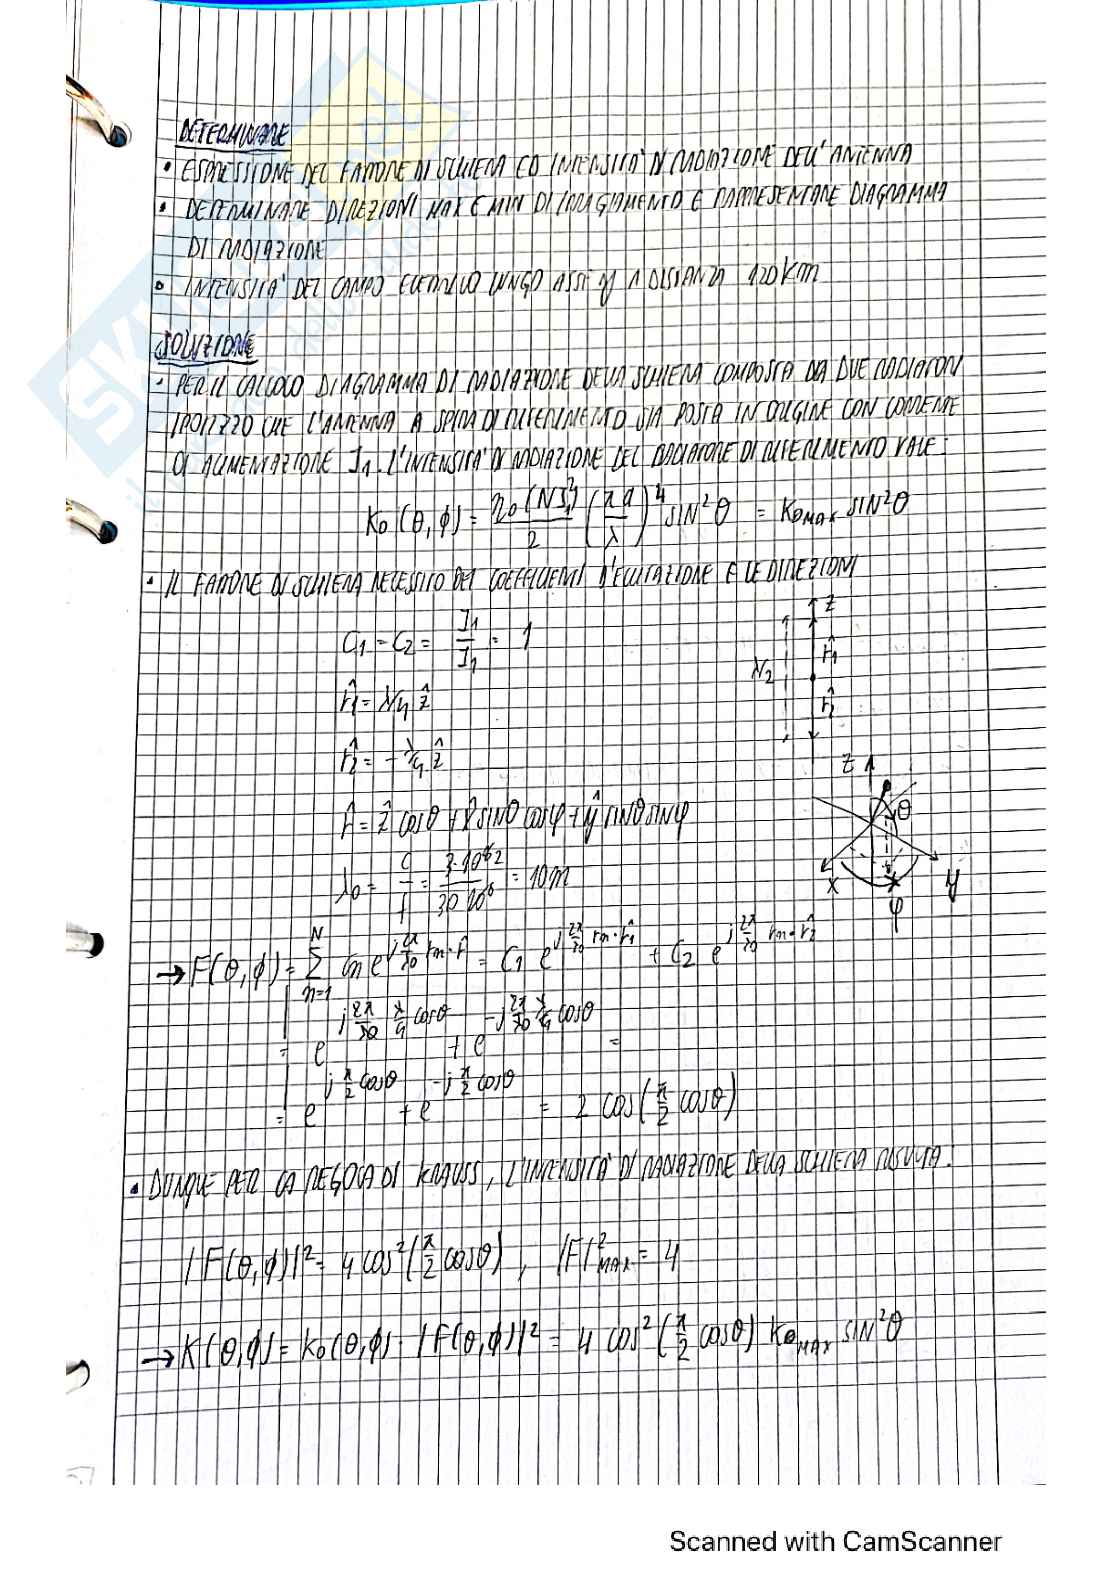 DETERMINARE
• ESPRESSIONE DEL FATTORE DI SCHIERA ED INTENSITA' DI RADIAZIONE DELL'ANTENNA
• DETERMINARE DIREZIONI MAX E MIN DI IRRAGIAMENTO E RAPPRESENTARE DIAGRAMMA
DI RADIAZIONE
• INTENSITA' DEL CAMPO ELETTRICO LUNGO ASSE y A DISTANZA 120 Km
SOLUZIONE
• PER IL CALCOLO DIAGRAMMA DI RADIAZIONE DELLA SCHIERA COMPOSTA DA DUE RADIATORI
IPOTIZZO CHE L'ANTENNA A SPIRA DI RIFERIMENTO SIA POSTA IN ORIGINE CON CORRENTE
DI ALIMENTAZIONE I1. L'INTENSITA' DI RADIAZIONE DEL RADIATORE DI RIFERIMENTO VALE:
K0(θ,ϕ) = η0 (NI1)²/2 (πa/λ)⁴ SIN²θ = K0MAX SIN²θ
• IL FATTORE DI SCHIERA NECESSITO DEI COEFFICIENTI D'ECCITAZIONE E LE DIREZIONI
C1 = C2 = I1/I1 = 1
z
r̂1
λ/2
r̂2
r̂1 = λ/4 ẑ
r̂2 = -λ/4 ẑ
z
θ
x
y
φ
r̂ = ẑ cosθ + x̂ sinθ cosφ + ŷ sinθ sinφ
λ0 = c/f = 3·10⁸/30·10⁶ = 10m
→ F(θ,ϕ) = Σ(n=1, N) Cn e^(j 2π/λ0 rn·r̂) = C1 e^(j 2π/λ0 rn·r̂1) + C2 e^(j 2π/λ0 rn·r̂2)
= e^(j 2π/λ0 λ/4 cosθ) + e^(-j 2π/λ0 λ/4 cosθ) =
= e^(j π/2 cosθ) + e^(-j π/2 cosθ) = 2 cos(π/2 cosθ)
• DUNQUE PER LA REGOLA DI KRAUSS, L'INTENSITA' DI RADIAZIONE DELLA SCHIERA RISULTA:
|F(θ,ϕ)|² = 4 cos²(π/2 cosθ), |F|²MAX = 4
→ K(θ,ϕ) = K0(θ,ϕ) · |F(θ,ϕ)|² = 4 cos²(π/2 cosθ) K0MAX SIN²θ
Scanned with CamScanner